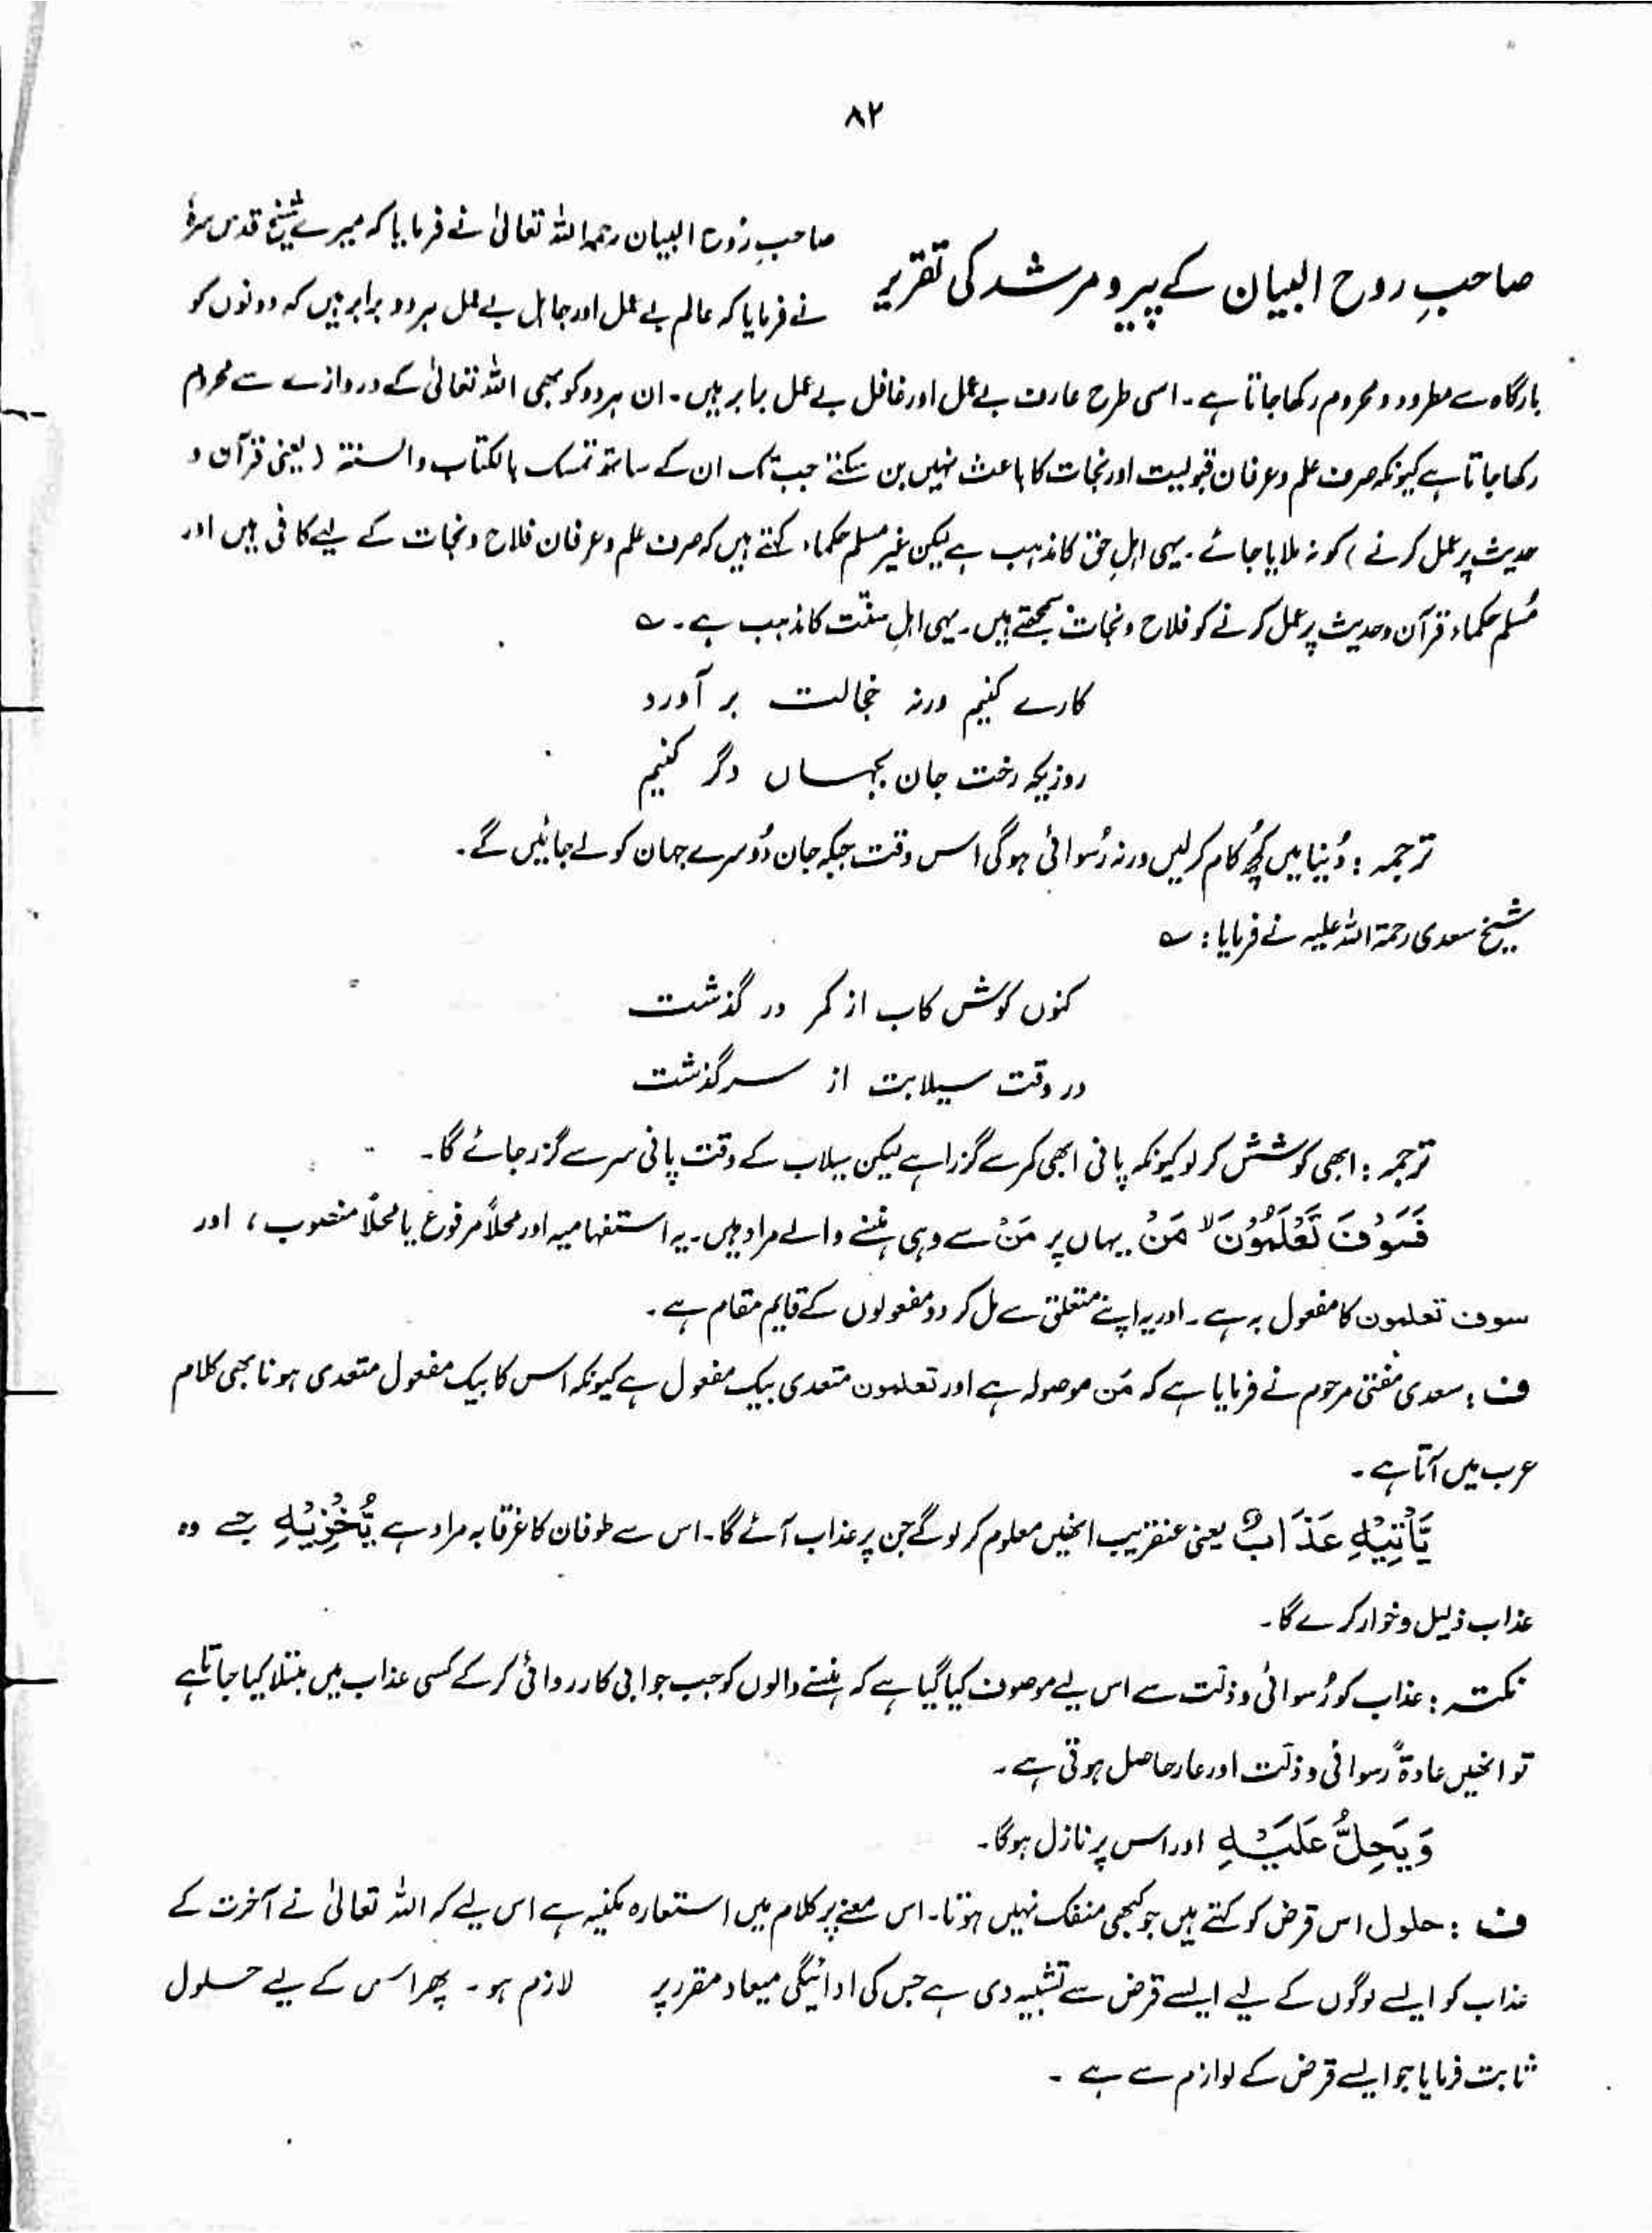 ۸۲
صاحبِ روح البیان کے پیر و مرشد کی تقریر
صاحبِ رُوح البیان رحمہ اللہ تعالیٰ نے فرمایا کہ میرے شیخ قدس سرہٗ
نے فرمایا کہ عالم بے عمل اور جاہل بے عمل ہر دو برابر ہیں کہ دونوں کو
بارگاہ سے مطرود و محروم رکھا جاتا ہے ۔ اسی طرح عارف بے عمل اور غافل بے عمل برابر ہیں ۔ ان ہر دو کو بھی اللہ تعالیٰ کے دروازے سے محروم
رکھا جاتا ہے کیونکہ صرف علم و عرفان قبولیت اور نجات کا باعث نہیں بن سکتے جب تک ان کے ساتھ تمسک بالکتاب والسنتہ (یعنی قرآن و
حدیث پر عمل کرنے) کو نہ ملایا جائے ۔ یہی اہلِ حق کا مذہب ہے لیکن غیر مسلم حکماء کہتے ہیں کہ صرف علم و عرفان فلاح و نجات کے لیے کافی ہیں اور
مُسلم حکماء قرآن و حدیث پر عمل کرنے کو فلاح و نجات سمجھتے ہیں ۔ یہی اہلِ سنّت کا مذہب ہے ۔ ؎
کارے کنیم ورنہ خجالت بر آورد
روزیکہ رخت جان بجہاں دگر کنیم
ترجمہ : دُنیا میں کچُھ کام کر لیں ورنہ رُسوائی ہوگی اس وقت جبکہ جان دُوسرے جہان کو لے جائیں گے ۔
شیخ سعدی رحمۃ اللہ علیہ نے فرمایا : ؎
کنوں کوش کاب از کمر در گذشت
در وقت سیلابت از سرگذشت
ترجمہ : ابھی کوشش کر لو کیونکہ پانی ابھی کمر سے گزرا ہے لیکن سیلاب کے وقت پانی سر سے گزر جائے گا ۔
فَسَوْفَ تَعْلَمُوْنَ ۙ مَنْ یہاں پر مَنْ سے وہی ہنسنے والے مراد ہیں ۔ یہ استفہامیہ اور محلاً مرفوع یا محلاً منصوب ، اور
سوف تعلمون کا مفعول بہ ہے ۔ اور یہ اپنے متعلق سے مل کر دو مفعولوں کے قایم مقام ہے ۔
ف : سعدی مفتی مرحوم نے فرمایا ہے کہ مَن موصولہ ہے اور تعلمون متعدی بیک مفعول ہے کیونکہ اس کا بیک مفعول متعدی ہونا بھی کلام
عرب میں آتا ہے ۔
یَّاْتِیْہِ عَذَابٌ یعنی عنقریب انھیں معلوم کر لو گے جن پر عذاب آئے گا ۔ اس سے طوفان کا غرقابہ مراد ہے یُّخْزِیْہِ جسے وہ
عذاب ذلیل و خوار کرے گا ۔
نکتہ : عذاب کو رُسوائی و ذلّت سے اس لیے موصوف کیا گیا ہے کہ ہنسنے والوں کو جب جوابی کارروائی کر کے کسی عذاب میں مبتلا کیا جاتا ہے
تو انھیں عادۃً رسوائی و ذلّت اور عار حاصل ہوتی ہے ۔
وَیَحِلُّ عَلَیْہِ اور اس پر نازل ہوگا ۔
ف : حلول اس قرض کو کہتے ہیں جو کبھی منفک نہیں ہوتا ۔ اس معنے پر کلام میں استعارہ مکنیہ ہے اس لیے کہ اللہ تعالیٰ نے آخرت کے
عذاب کو ایسے لوگوں کے لیے ایسے قرض سے تشبیہ دی ہے جس کی ادائیگی میعاد مقرر پر لازم ہو ۔ پھر اس کے لیے حلول
ثابت فرمایا جو ایسے قرض کے لوازم سے ہے ۔